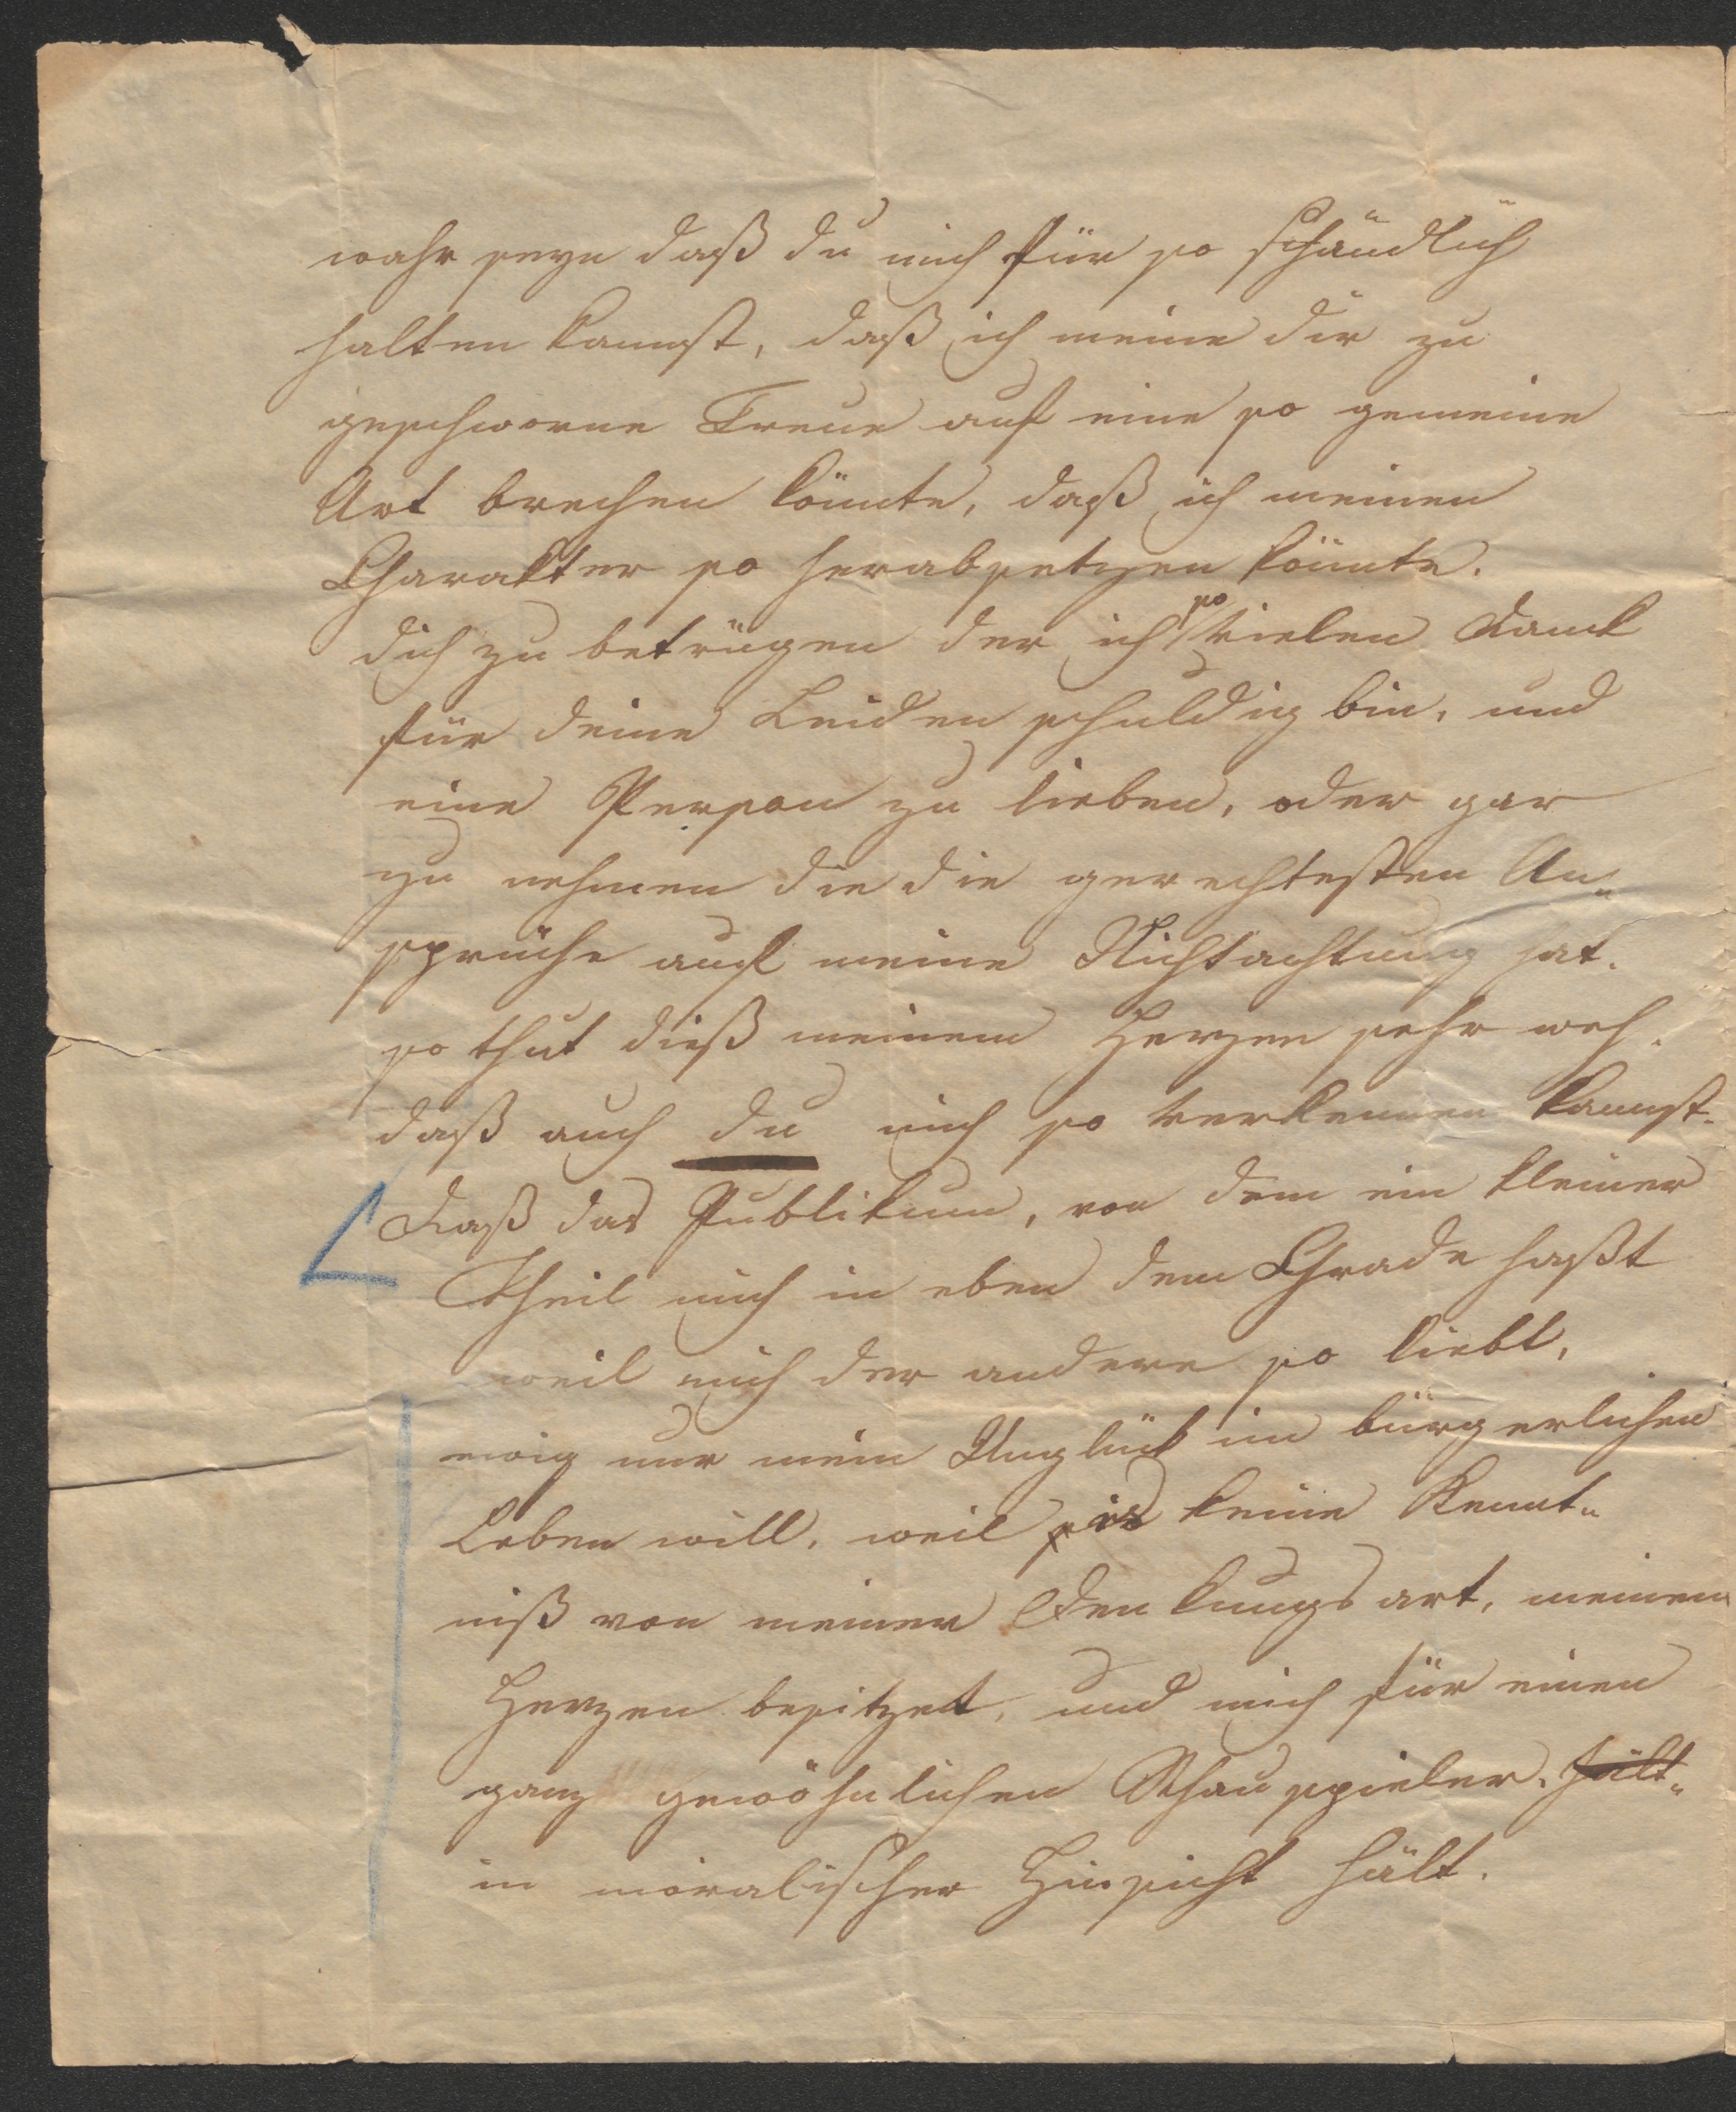 wahr seyn daß du mich für so schändlich
halten kannst, daß ich meine dir zu
geschworne Treue auf eine so gemeine
Art brechen könnte, daß ich meinen
Charakter so herabsetzen könnte.
dich zu betrügen der ich so vielen Dank
für deine Leiden schuldig bin, und
eine Person zu lieben, oder gar
zu nehmen die die gerechtesten An„
sprüche auf meine Nichtachtung hat.
so thut dieß meinem Herzen sehr weh.
daß auch du mich so verkennen kannst.
Daß das Publikum, von dem ein kleiner
Theil mich in eben dem Grade haßt
weil mich der andere so liebt,
ewig nur mein Unglück im bürgerlichen
Leben will, weil es keine Kennt„
niß von meiner Denkungsart, meinem
Herzen besitzet, und mich für einen
ganz gewöhnlichen Schauspieler, hält„
in moralischer Hinsicht hält.